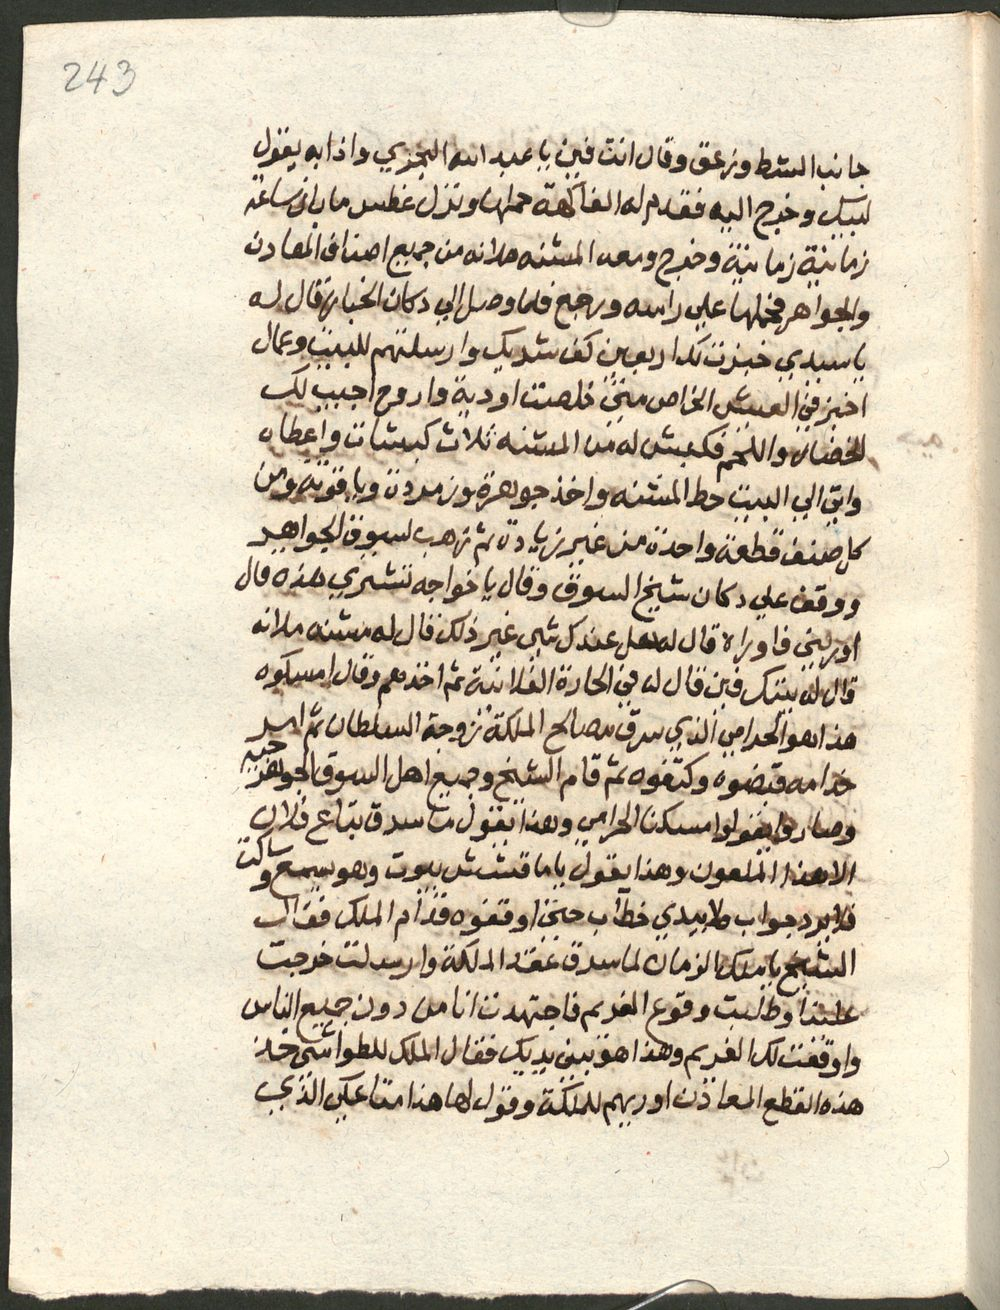 243
جانب الشط وزعق وقال انت فين يا عبد الله البحري واذا به يقول
لبيك وخرج اليه فقدم له الفاكهة حملها ونزل غطس ما بان ساعة
زمانية زمانية وخرج ومعه المشنه ملانه من جميع اصناف المعادن
والجواهر فحملها علي راسه ورجع فلما وصل الي دكان الخباز قال له
يا سيدي خبزت لك اربعين كف شريك وارسلتهم للبيت وعمال
اخبز في العيش الخاص متي خلصت اوديه واروح اجيب لك
الخضار واللحم فكبش له من المشنه ثلاث كبشات واعطاه
واتي الي البيت حط المشنه واخذ جوهرة وزمردة وياقوته ومن
كل صنف قطعة واحدة من غير زيادة ثم ذهب لسوق الجواهر
ووقف علي دكان شيخ السوق وقال يا خواجه تشتري هذه قال
اوريني فاوراه قال له هل عندك شي غير ذلك قال له مشنه ملانه
قال له بيتك فين قال له في الحارة الفلانية ثم اخذهم وقال امسكوه
هذا هو الحرامي الذي سرق مصالح الملكة زوجة السلطان ثم امر
خدامه قبضوه وكتفوه ثم قام الشيخ وجميع اهل السوق الجوهرجيه
وصاروا يقولوا مسكنا الحرامي وهذا يقول ما سرق بتاع فلان
الا هذا الملعون وهذا يقول ياما قشش بيوت وهو يسمع وساكت
فلا يرد جواب ولا يبدي خطاب حتي اوقفوه قدام الملك فقال
الشيخ يا ملك الزمان لما سرق عقد الملكة وارسلت خرجت
علينا وطلبت وقوع الغريم فاجتهدت انا من دون جميع الناس
واوقفت لك الغريم وهذا هو بين يديك فقال الملك للطواشي خذ
هذه القطع المعادن اوريهم للملكة وقول لها هذا متاعك الذي